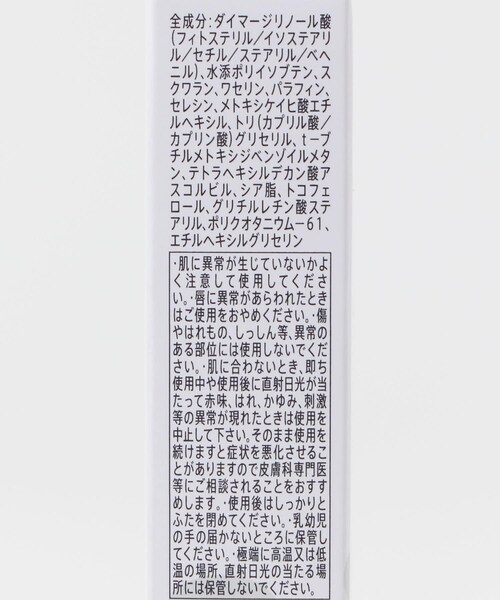 全成分:ダイマージリノール酸
(フィトステリル/イソステアリ
ル/セチル/ステアリル/ベヘ
ニル)、水添ポリイソブテン、ス
クワラン、ワセリン、パラフィン、
セレシン、メトキシケイヒ酸エチ
ルヘキシル、トリ(カプリル酸/
カプリン酸)グリセリル、t-ブ
チルメトキシジベンゾイルメタ
ン、テトラヘキシルデカン酸ア
スコルビル、シア脂、トコフェ
ロール、グリチルレチン酸ステ
アリル、ポリクオタニウム-61、
エチルヘキシルグリセリン
・肌に異常が生じていないかよ
く注意して使用してくださ
い。・唇に異常があらわれたとき
はご使用をおやめください。・傷
やはれもの、しっしん等、異常の
ある部位には使用しないでくだ
さい。・肌に合わないとき、即ち
使用中や使用後に直射日光が当
たって赤味、はれ、かゆみ、刺激
等の異常が現れたときは使用を
中止して下さい。そのまま使用を
続けますと症状を悪化させるこ
とがありますので皮膚科専門医
等にご相談されることをおすす
めします。・使用後はしっかりと
ふたを閉めてください。・乳幼児
の手の届かないところに保管し
てください。・極端に高温又は低
温の場所、直射日光の当たる場
所には保管しないでください。